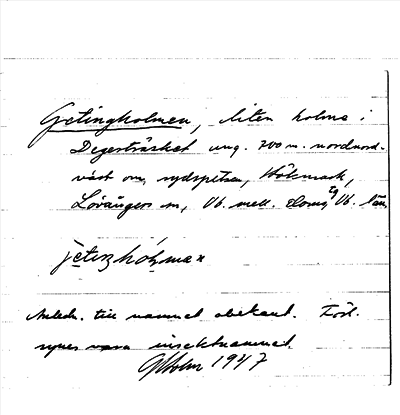 Getingholmen, liten holme i
Degerträsket ung. 700 m. nordnord-
väst om sydspetsen, Hökmark,
Lövångers sn, Vb. mell. doms, Vb. län
jetiŋhólman
Anledn. till namnet obekant. Förl.
synes vara insektnamnet.
G Holm 1947